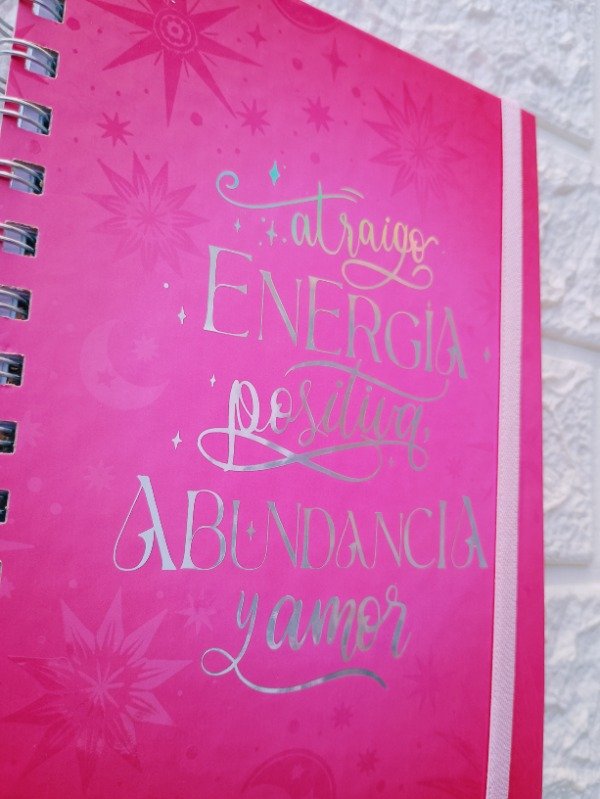 atraigo
ENERGÍA
positiva,
ABUNDANCIA
y amor